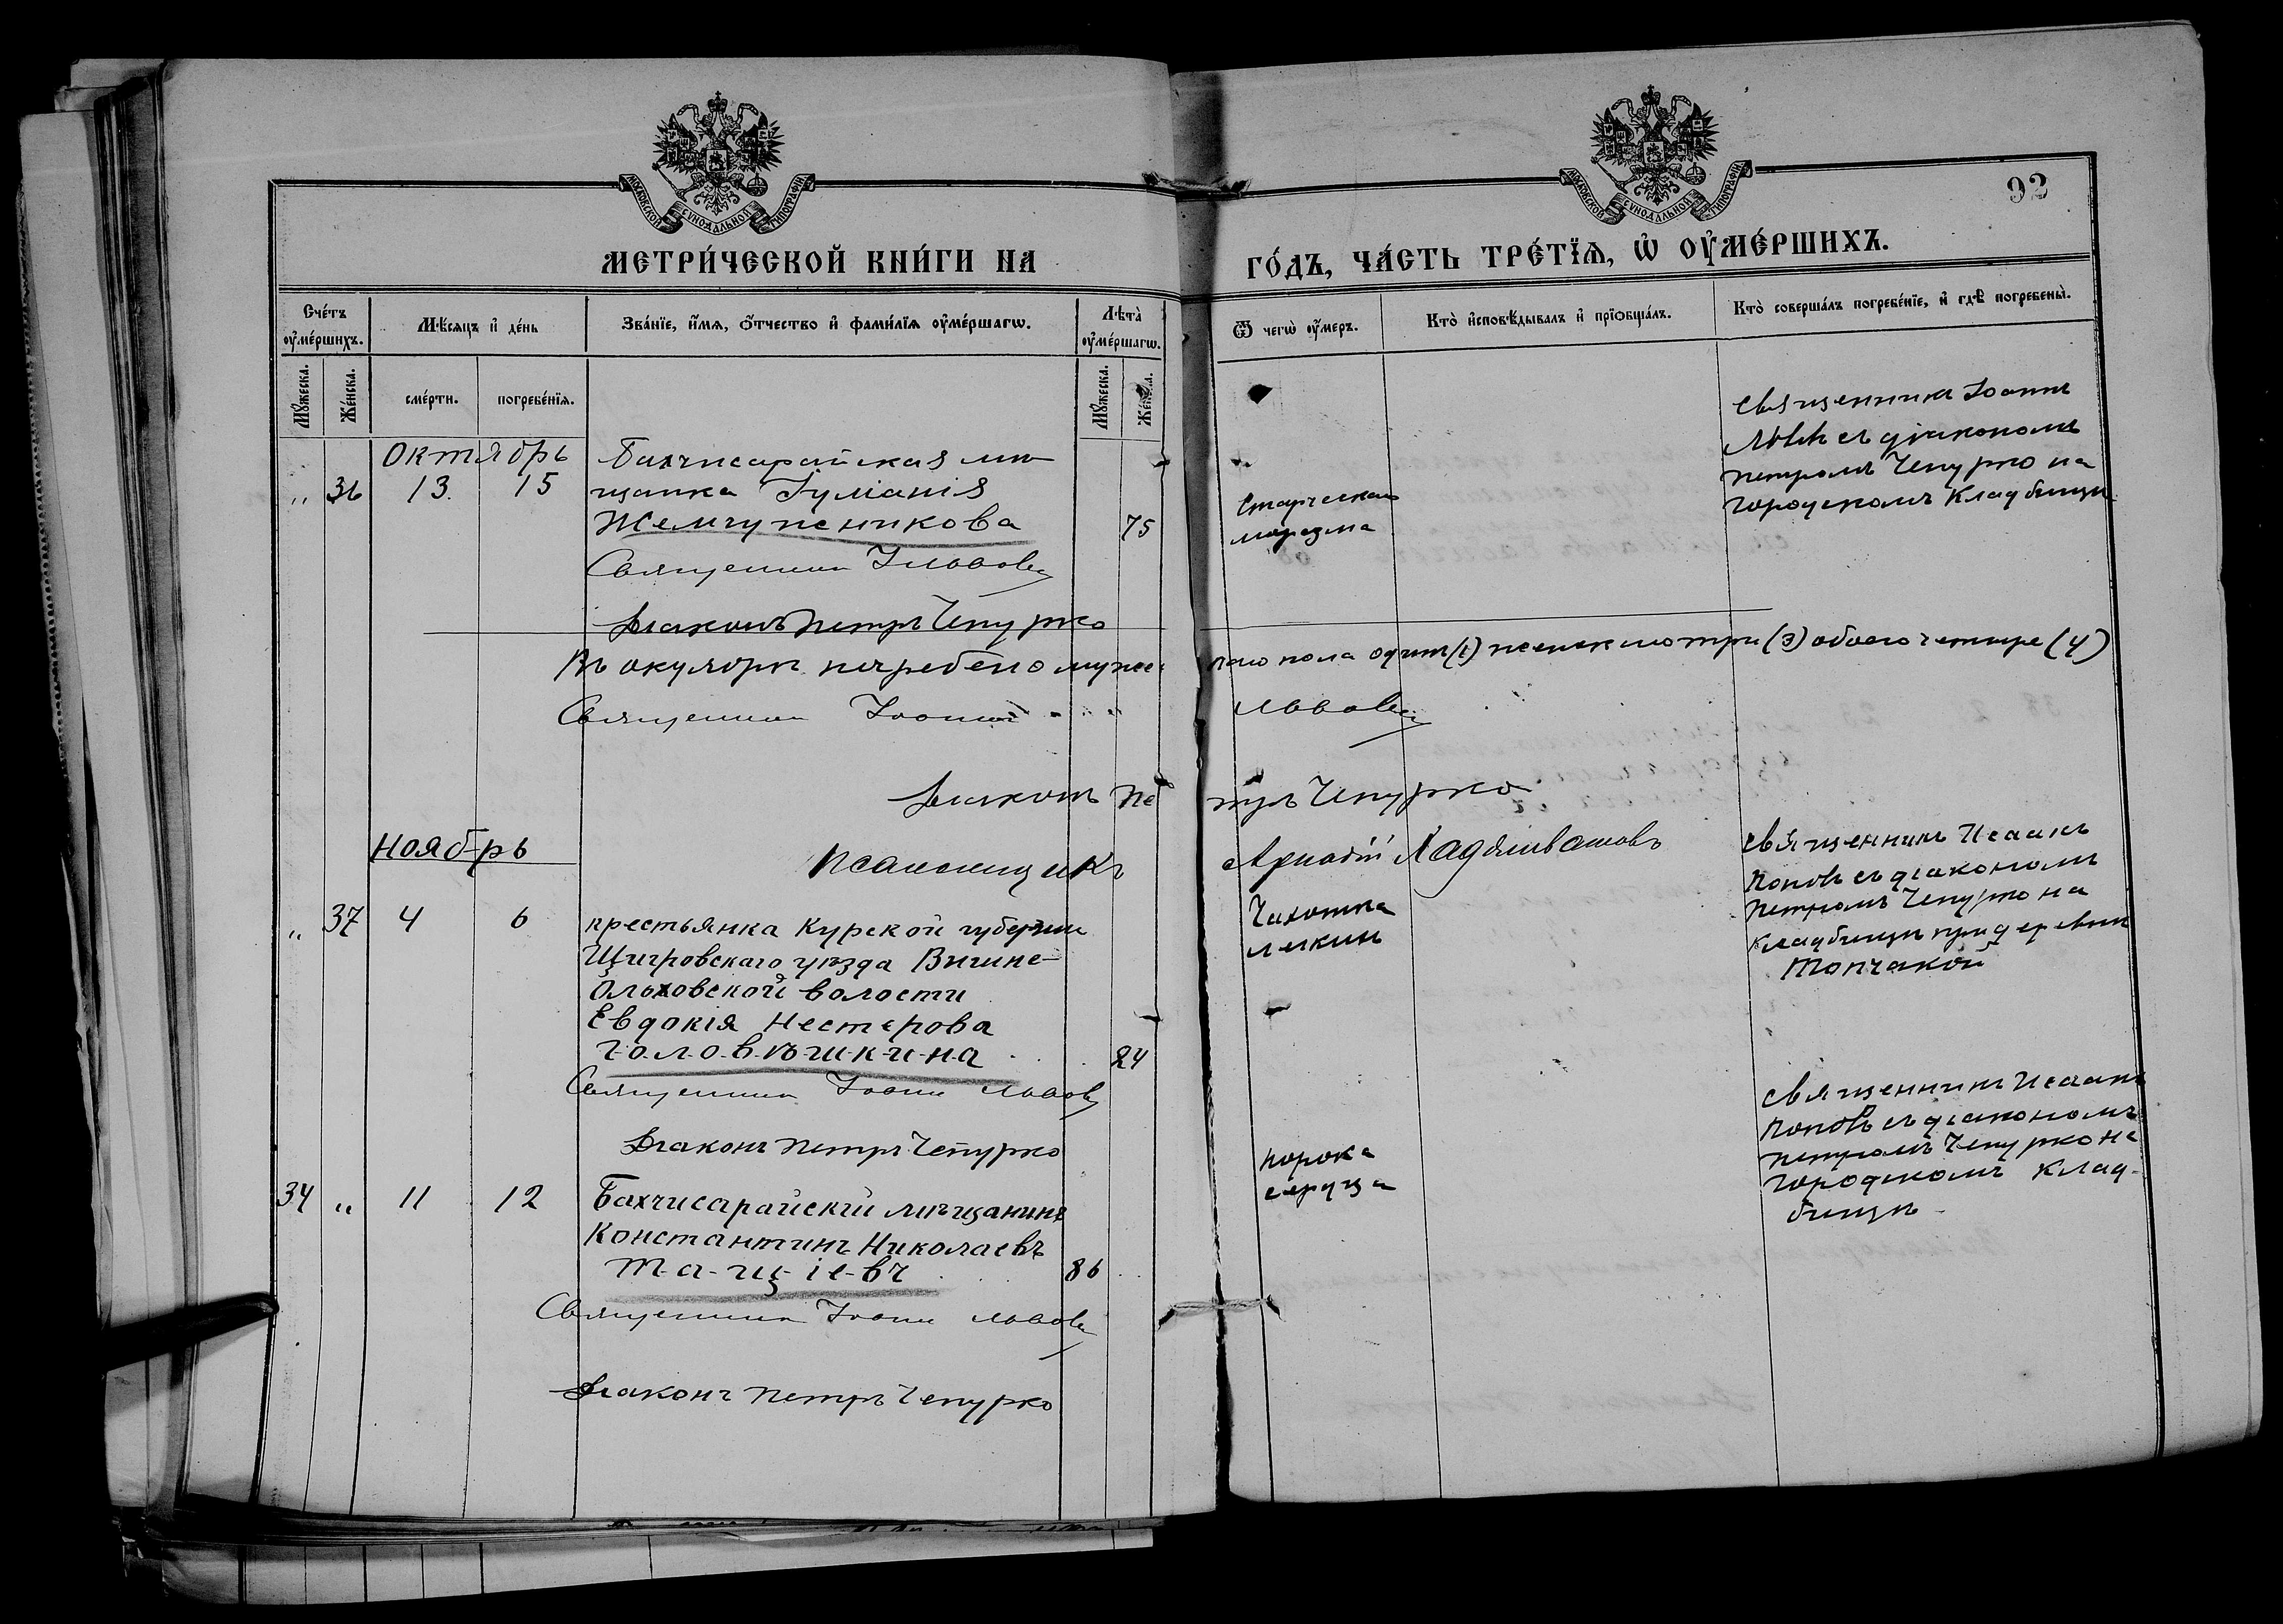 МОСКОВСКОЙ СУНОДАЛЬНОЙ ТИПОГРАФІИ
МЕТРИ́ЧЕСКОЙ КНИ́ГИ НА
Сче́тъ ᲂу҆ме́ршихъ.
Мѣ́сяцъ и҆ де́нь
Зва́нїе, и҆́мѧ, ѻ҆́тчество и҆ фами́лїѧ ᲂу҆ме́ршагѡ.
Лѣ̑та̀ ᲂу҆ме́ршагѡ.
Мꙋ́жеска.
Же́нска.
сме́рти.
погребе́нїѧ.
Мꙋ́жеска.
Же́нска.
Октябрь
Бахчисарайская мѣ-
„ 36 13. 15 щанка Іуліанія
Жемчужникова 75
Священникъ І Львовъ
Діаконъ Петръ Чепурко
Въ октябрѣ погребено мужес-
Священникъ Іоаннъ
Діаконъ Пе
Ноябрь
Псаломщикъ
„ 37 4 6 крестьянка Курской губерніи
Щигровскаго уѣзда Вышне-
Ольховской волости
Евдокія Нестерова
Г-о-л-о-в-ѣ-ш-к-и-н-а 24
Священникъ Іоаннъ Львовъ
Діаконъ Петръ Чепурко
34 „ 11 12 Бахчисарайскій мѣщанинъ
Константинъ Николаевъ
Т-а-ц-іе-въ 86
Священникъ Іоаннъ Львовъ
Діаконъ Петръ Чепурко
МОСКОВСКОЙ СУНОДАЛЬНОЙ ТИПОГРАФІИ
92
ГО́ДЪ, ЧА́СТЬ ТРЕ́ТЇѦ, Ѡ҆ ОУ҆МЕ́РШИХЪ.
Ѿ чегѡ̀ ᲂу҆́меръ.
Кто̀ и҆сповѣ́дывалъ и҆ прїѡбща́лъ.
Кто̀ соверша́лъ погребе́нїе, и҆ гдѣ̀ погребены̀.
Священникъ Іоаннъ
Львовъ съ діакономъ
Петромъ Чепурко на
городскомъ кладбищѣ
Старческаго
маразма
каго пола одинъ (1) женскаго три (3) обоего четыре (4)
Львовъ
тръ Чепурко
Аркадій
Священникъ Исаакъ
Поповъ съ діакономъ
Петромъ Чепурко на
кладбищѣ при деревнѣ
Топчакой
Чахотка
легкихъ
Священникъ Исаакъ
Поповъ съ діакономъ
Петромъ Чепурко на
городскомъ клад-
бищѣ
Порока
сердца